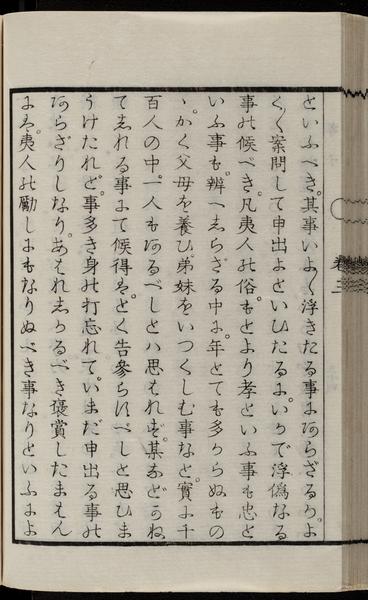 といふべき。其事いよ〳〵浮きたる事にあらざるか。よ
く〳〵案問して申出よといひたるに。いかで浮偽なる
事の候べき。凡夷人の俗。もとより孝といふ事も忠と
いふ事も。辨へしらざる中に。年とても多からぬもの
ゝ。かく父母を養ひ。弟妹をいつくしむ事など。實に千
百人の中。一人もあるべしとハ思はれず。某などかね
てしれる事にて候得ば。とく告参らすべしと思ひま
うけたれど。事多き身の打忘れて。いまだ申出る事の
あらざりしなり。あはれしかるべき褒賞したまはん
には。夷人の勵しにもなりぬべき事なりといふによ
卷二